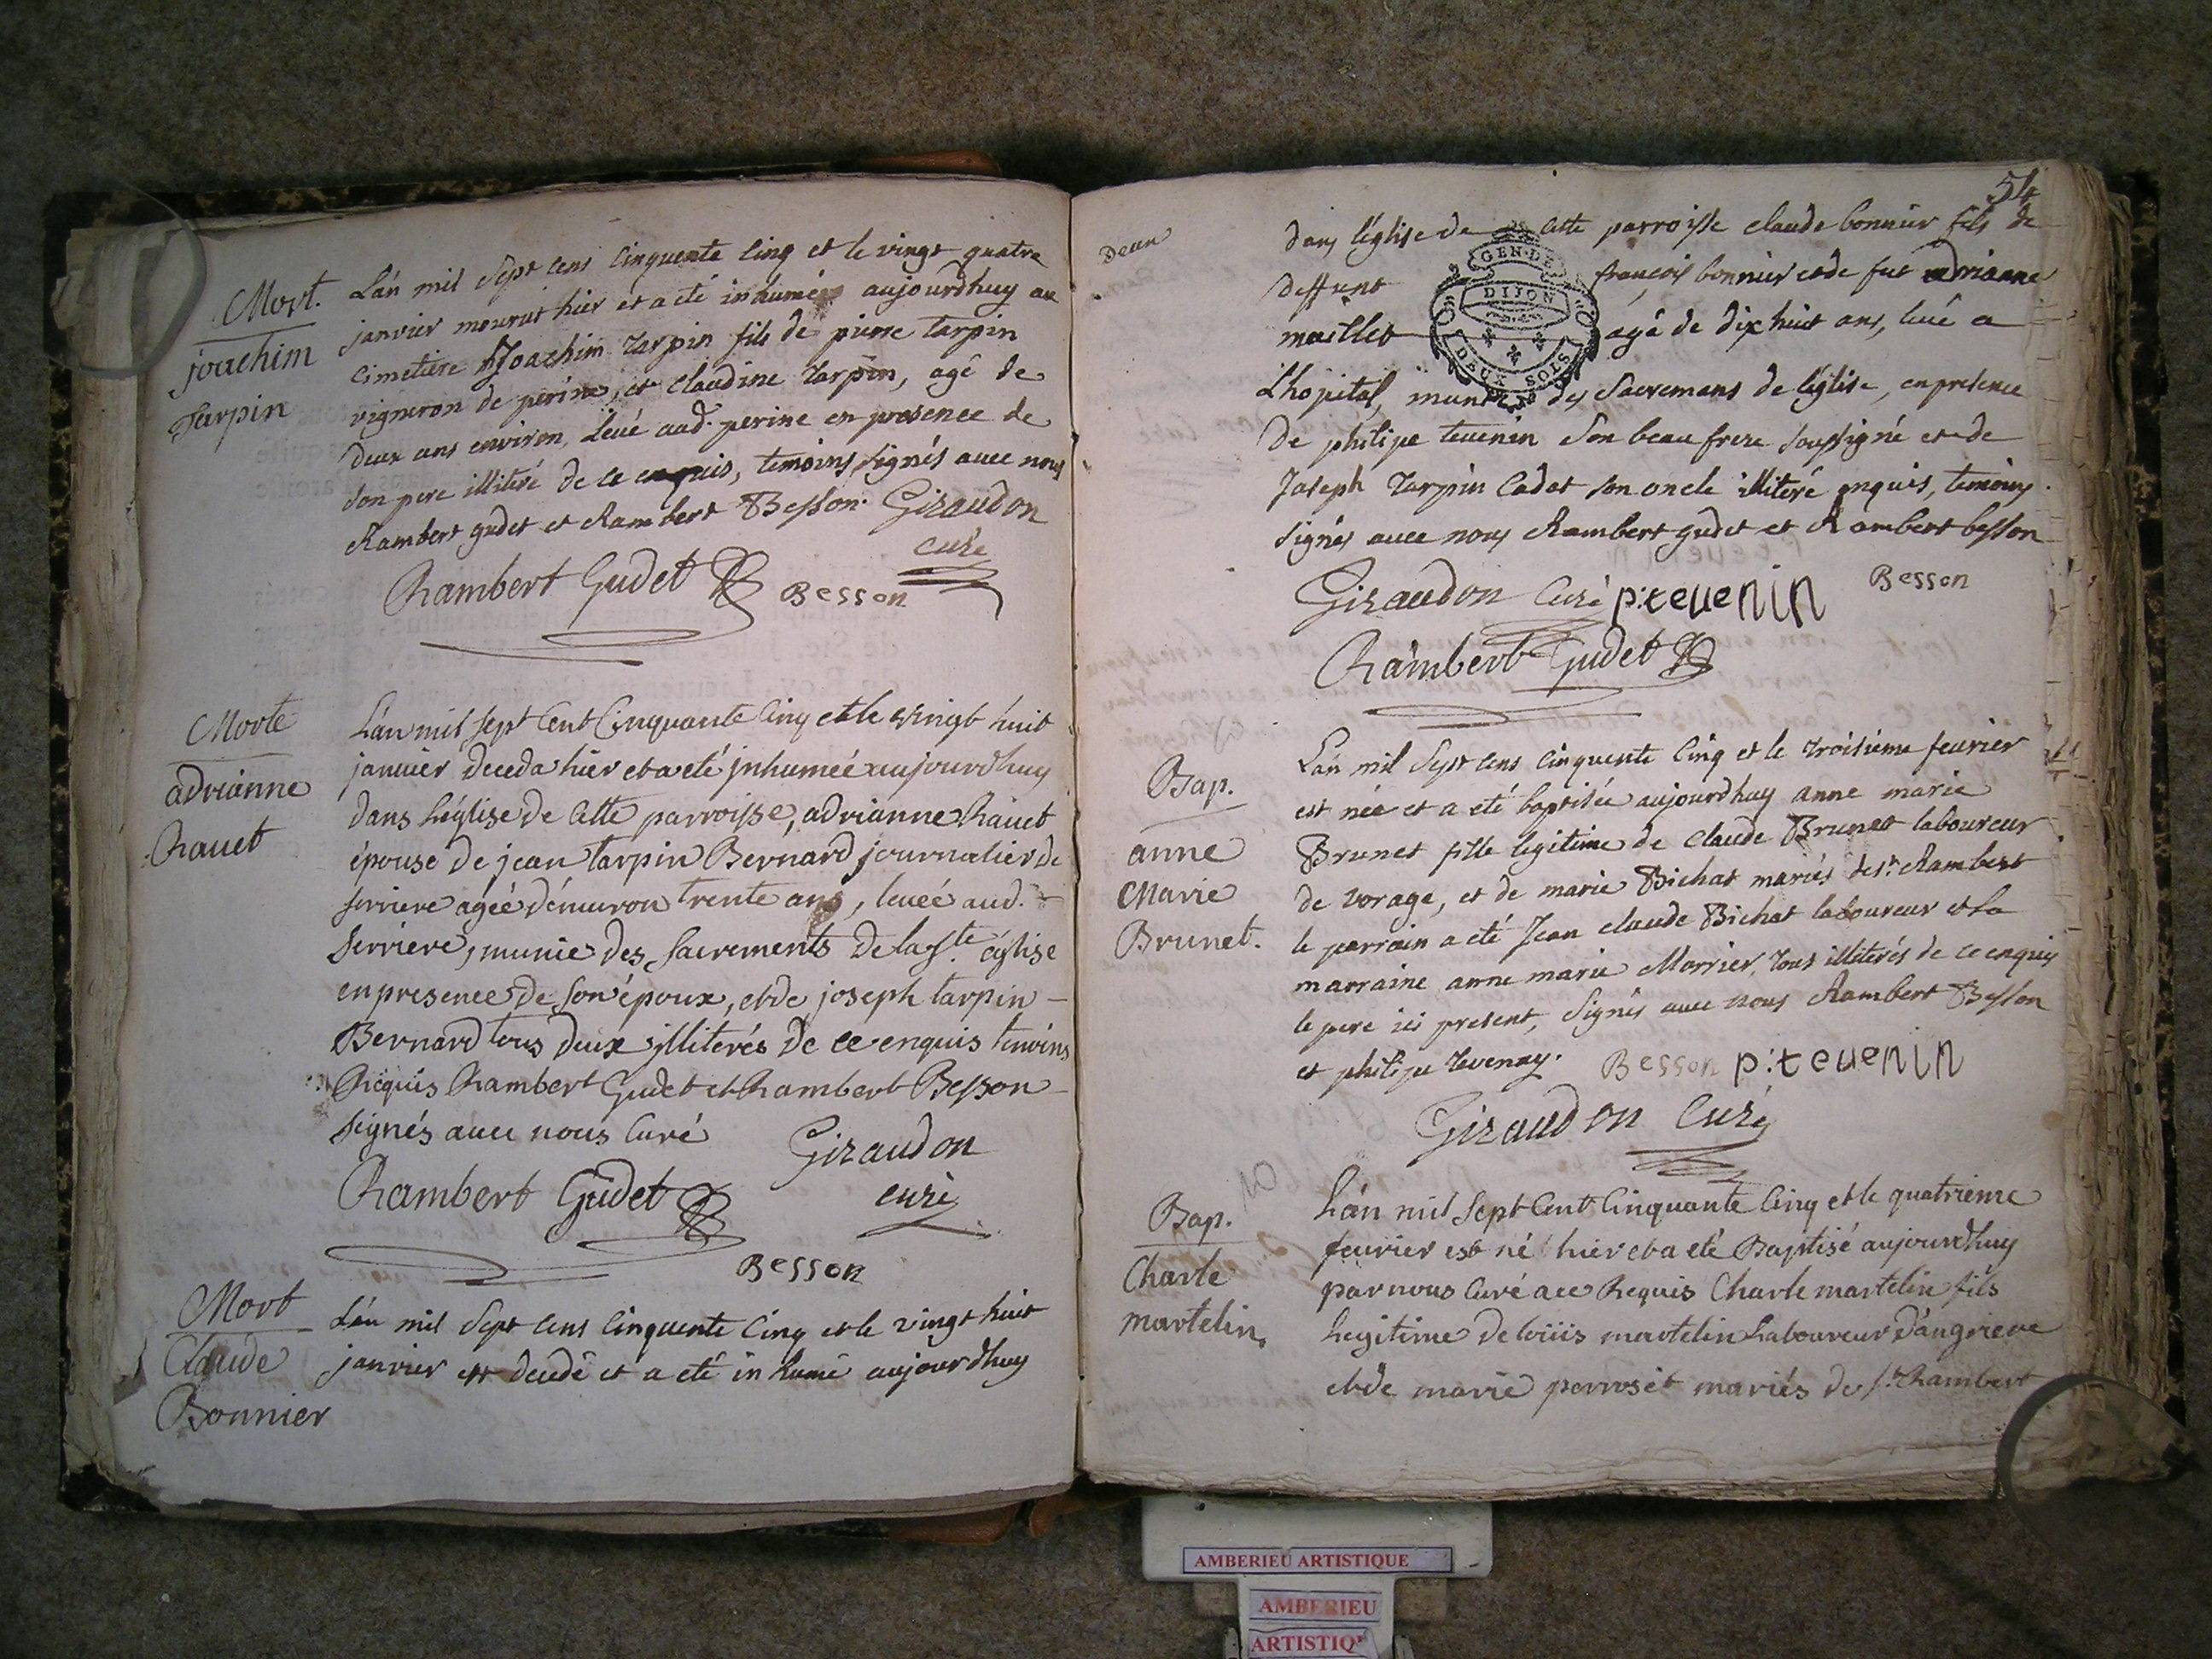 Mort.
joachim
Tarpin
L'an mil sept cens cinquente cinq et le vingt quatre
janvier mourut hier et a eté inhumé aujourdhuy au
cimetiere Joachim Tarpin fils de pierre tarpin
vigneron de perine, et claudine Tarpin, agé de
deux ans environ, levé aud. perine en presence de
son pere illiteré de ce enquis, temoins signés avec nous
Rambert gudet et Rambert Besson. Giraudon
curé
Rambert Gudet Besson
Morte
adrianne
Ravet
L'an mil sept Cent Cinquante Cinq et le vingt huit
janvier deceda hier et a eté jnhumée aujourdhuy
dans L'église de Cette parroisse, adrianne Ravet
épouse de jean tarpin Bernard journalier de
serriere agée d'environ trente ans, levée aud.
Serriere, munie des Sacrements De la ste église
en presence de Son époux, et de joseph tarpin
Bernard tous deux illiterés De ce enquis temoins
Requis Rambert Gudet et Rambert Besson
signés avec nous Curé Giraudon
curé
Rambert Gudet
Besson
Mort
Claude
Bonnier
L'an mil sept cens cinquente cinq et le vingt huit
janvier est decedé et a eté inhumé aujourdhuy
54
dans l'église de cette parroisse claude bonnier fils de
deffunt françois bonnier et de fut adrianne
maillet agé de dix huit ans, levé a
L'hopital, muni des Sacremans de l'église, en presence
De philipe tevenin Son beau frere soussigné et de
Joseph Tarpin Cadet son oncle illiteré enquis, temoins
signés avec nous Rambert gudet et Rambert besson
GEN. DE
DIJON
DEUX SOLS
Giraudon Curé p:tevenin Besson
Rambert Gudet
Bap.
anne
Marie
Brunet.
L'an mil sept cens cinquente cinq et le troisieme fevrier
est née et a eté baptisée aujourdhuy anne marie
Brunet fille legitime de claude Brunet laboureur
de vorage, et de marie Bichat mariés de st Rambert
le parrain a eté Jean claude Bichat laboureur et la
marraine anne marie Morrier, tous illiterés de ce enquis
le pere ici present, signés avec nous Rambert Besson
et philipe tevenay. Besson p:tevenin
Giraudon Curé
10
Bap.
Charle
martelin.
L'an mil sept Cent Cinquante Cinq et le quatrieme
fevrier est né hier et a eté Baptisé aujourdhuy
par nous Curé a ce Requis Charle martelin fils
Legitime De loüis martelin Laboureur d'angrieve
et de marie perroset mariés de st Rambert
AMBERIEU ARTISTIQUE
AMBERIEU
ARTISTIQ